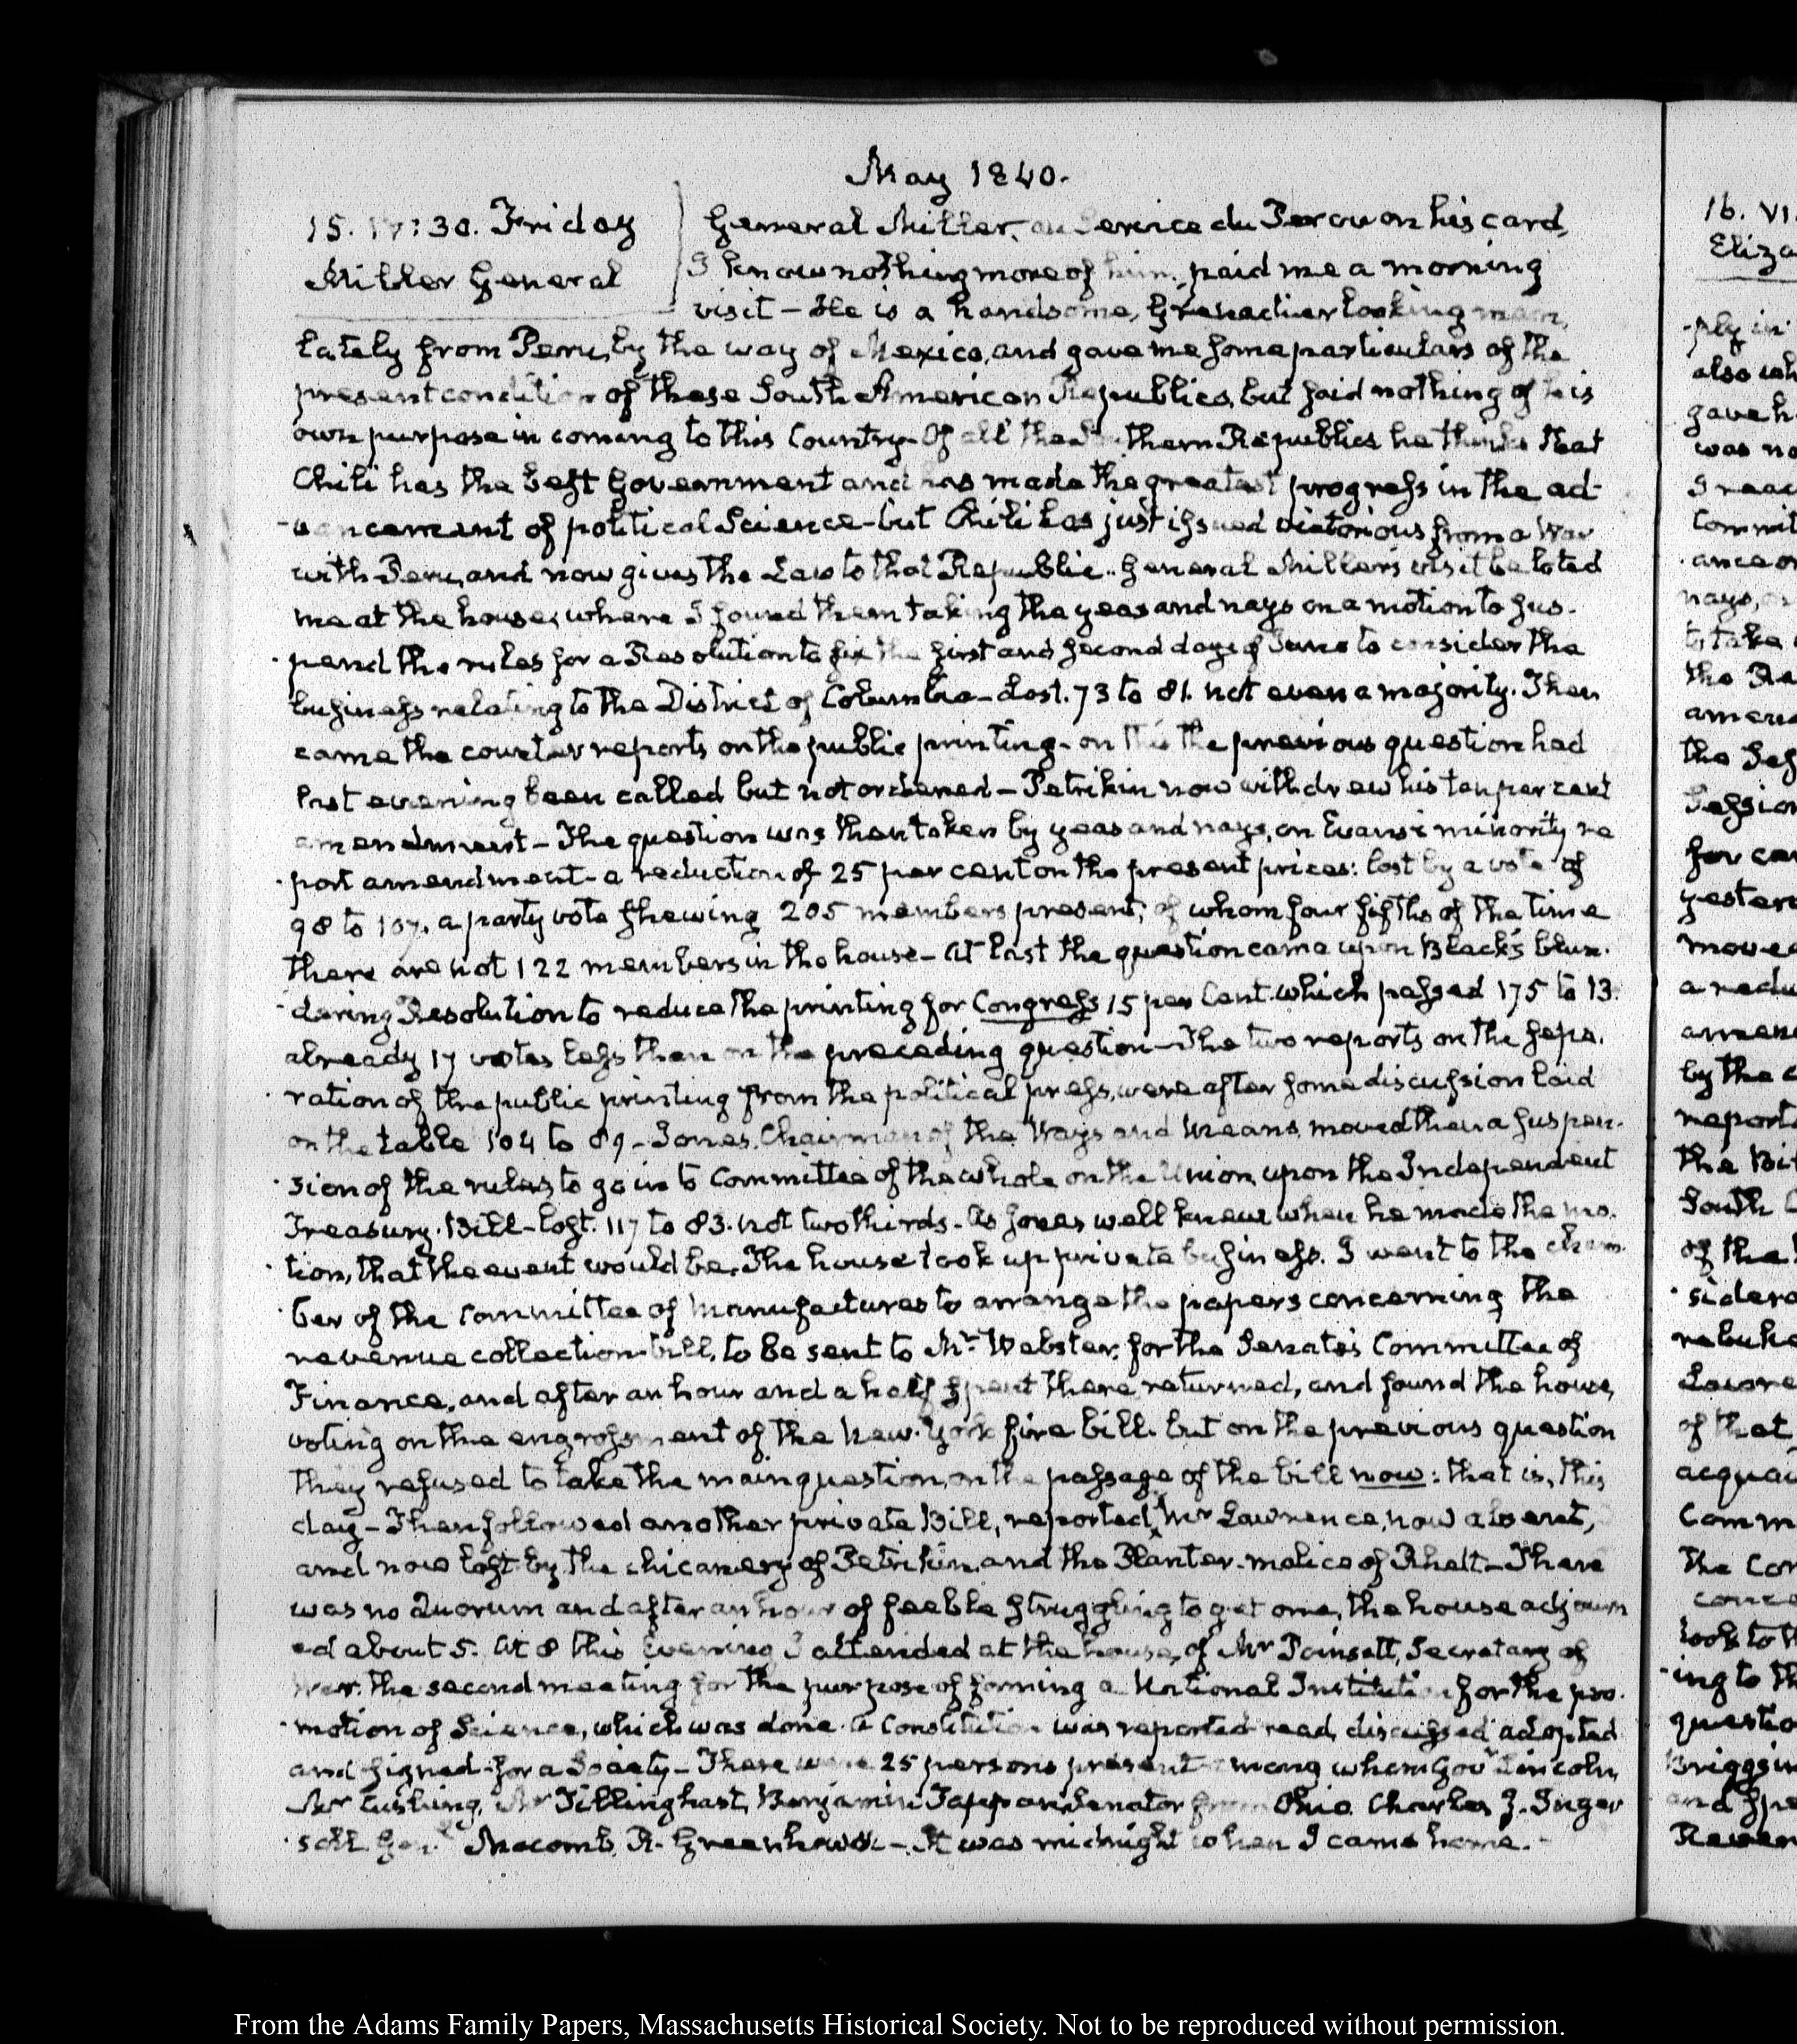 May 1840.
15. IV:30. Friday
Miller General
General Miller, au Service du Perou on his card,
I know nothing more of him, paid me a morning
visit – He is a handsome, Grenadier looking man,
lately from Peru, by the way of Mexico, and gave me some particulars of the
present condition of these South American Republics, but said nothing of his
own purpose in coming to this Country– Of all the Southern Republics he thinks that
Chili has the best Government and has made the greatest progress in the ad-
-vancement of political Science– but Chili has just issued victorious from a War
with Peru, and now gives the Law to that Republic.. General Miller's visit belated
me at the house, where I found them taking the yeas and nays on a motion to sus-
-pend the rules for a Resolution to fix the first and second days of June to consider the
business relating to the District of Columbia– Lost. 73 to 81. not even a majority. Then
came the counter reports on the public printing– on this the previous question had
last evening been called but not ordered – Petrikin now withdrew his ten per cent
amendment – The question was then taken by yeas and nays, on Evans's minority re
-port amendment– a reduction of 25 per cent on the present prices: lost by a vote of
98 to 107. a party vote shewing 205 members present, of whom four fifths of the time
there are not 122 members in the house– At last the question came upon Black's blun-
-dering Resolution to reduce the printing for Congress 15 per Cent. which passed 175 to 13.
already 17 votes less than on the preceding question– The two reports on the sepa-
-ration of the public printing from the political press, were after some discussion laid
on the table 104 to 89 – Jones. Chairman of the Ways and Means, moved then a suspen-
-sion of the rules to go into Committee of the whole on the Union, upon the Independent
Treasury. Bill– lost. 117 to 83. not two thirds– As Jones well knew when he made the mo-
-tion, that the event would be. The house took up private business. I went to the cham-
-ber of the Committee of Manufactures to arrange the papers concerning the
revenue collection bill, to be sent to Mr Webster, for the Senate's Committee of
Finance, and after an hour and a half spent there returned, and found the house,
voting on the engrossment of the New-York fire bill. but on the previous question
they refused to take the main question, on the passage of the bill now: that is, this
day – Then followed another private Bill, reported ^ Mr Lawrence, now absent,
and now lost by the chicanery of Petrikin, and the Planter-malice of Rhett – There
was no Quorum and after an hour of feeble struggling to get one, the house adjourn
ed about 5. At 8 this Evening I attended at the house, of Mr Poinsett, Secretary of
War, the second meeting for the purpose of forming a National Institution for the pro-
-motion of Science, which was done. A Constitution was reported read, discussed adopted
and signed– for a Society – There were 25 persons present among whom Govr Lincoln,
Mr Cushing, Mr Tillinghast, Benjamin Tappan, Senator from Ohio. Charles J. Inger
-soll Genl Macomb, R. Greenhow &c –. It was midnight when I came home. –
16. VI.
Eliza
From the Adams Family Papers, Massachusetts Historical Society. Not to be reproduced without permission.